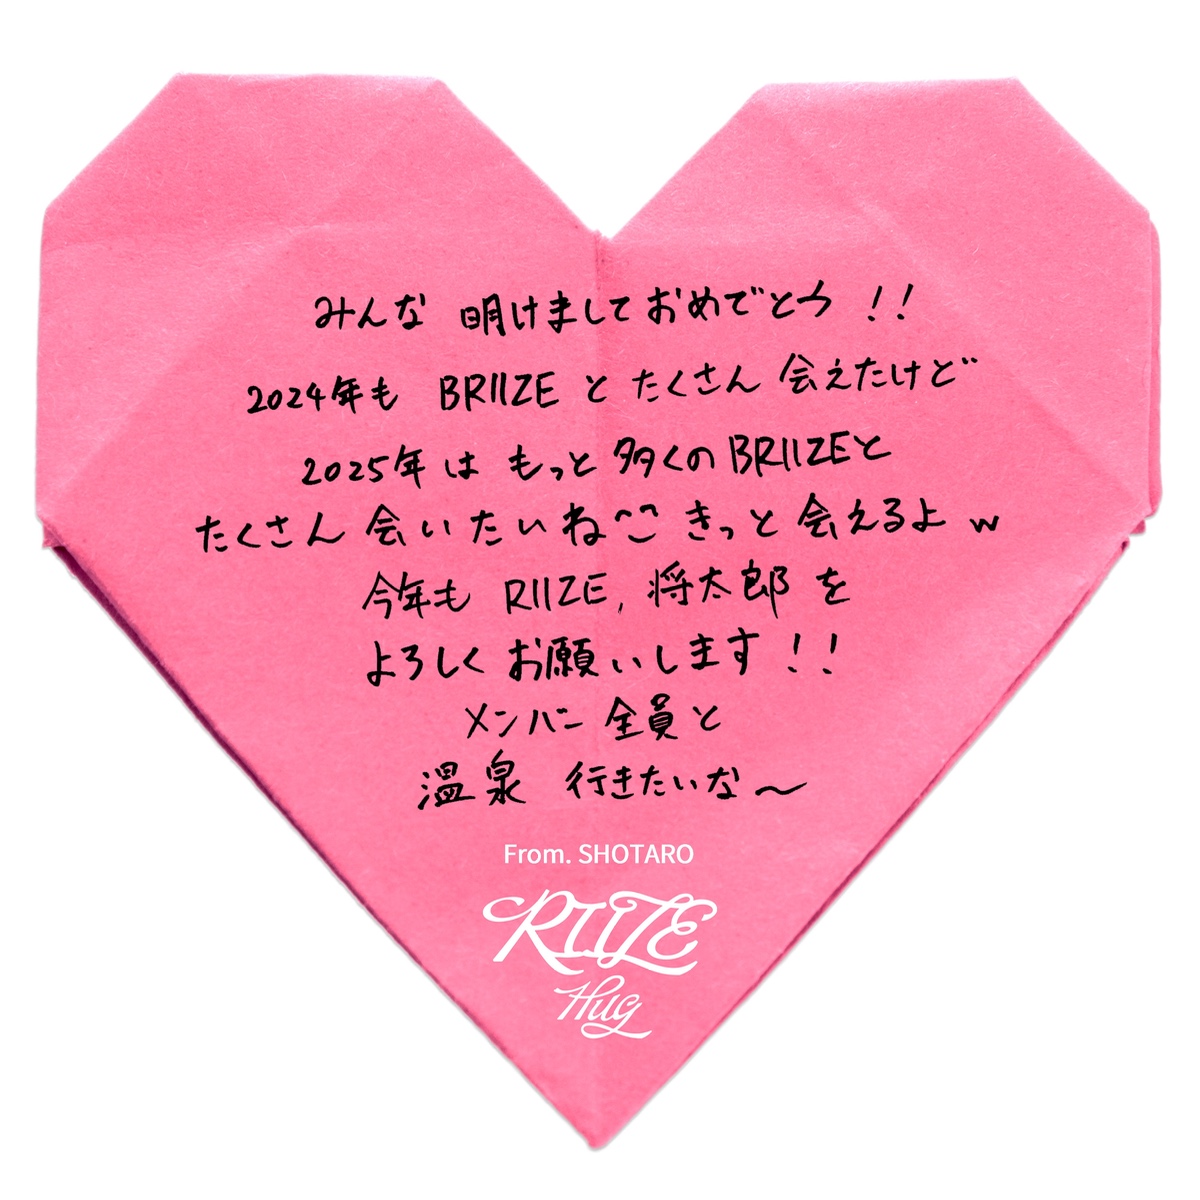 みんな 明けましておめでとう !!
2024年も BRIIZE と たくさん 会えたけど
2025年 は もっと 多くの BRIIZEと
たくさん 会いたいね^^ きっと 会えるよ w
今年も RIIZE, 将太郎 を
よろしく お願いします !!
メンバー 全員と
温泉 行きたいな〜
From. SHOTARO
RIIZE
Hug